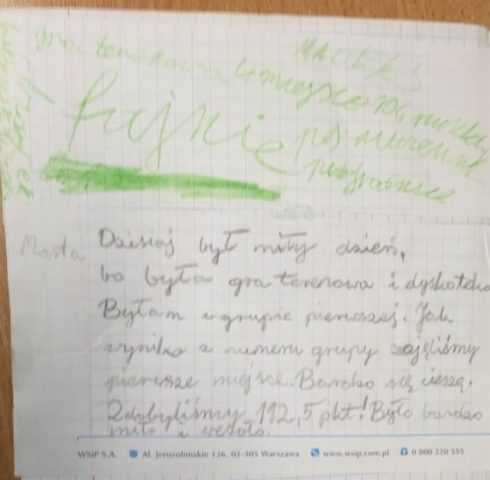 MACEKS
gra terenowa 1 miejsce
fajnie
Marta
Dzisiaj był miły dzień,
bo była gra terenowa i dyskoteka
Byłam w grupie pierwszej. Jak
wynika z numeru grupy zajęliśmy
pierwsze miejsce. Bardzo się cieszę.
Zdobyliśmy 192,5 pkt! Było bardzo
miło i wesoło.
WSiP S.A. Al. Jerozolimskie 136, 02-305 Warszawa www.wsip.com.pl 0 800 220 555